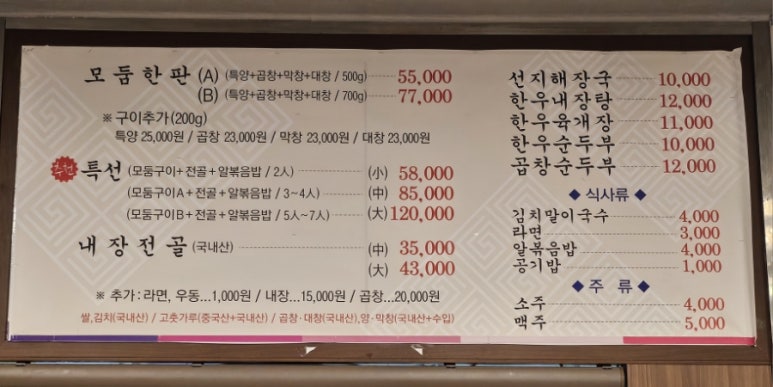 모둠한판 (A) (특양+곱창+막창+대창 / 500g) 55,000
(B) (특양+곱창+막창+대창 / 700g) 77,000
※ 구이추가(200g)
특양 25,000원 / 곱창 23,000원 / 막창 23,000원 / 대창 23,000원
특선 (모둠구이+전골+알볶음밥 / 2人) (小) 58,000
(모둠구이A+전골+알볶음밥 / 3~4人) (中) 85,000
(모둠구이B+전골+알볶음밥 / 5人~7人) (大) 120,000
내장전골 (국내산) (中) 35,000
(大) 43,000
※ 추가 : 라면, 우동...1,000원 / 내장...15,000원 / 곱창...20,000원
쌀,김치(국내산) / 고춧가루(중국산+국내산) / 곱창·대창(국내산),양·막창(국내산+수입)
선지해장국 10,000
한우내장탕 12,000
한우육개장 11,000
한우순두부 10,000
곱창순두부 12,000
◆ 식사류 ◆
김치말이국수 4,000
라면 3,000
알볶음밥 4,000
공기밥 1,000
◆ 주 류 ◆
소주 4,000
맥주 5,000